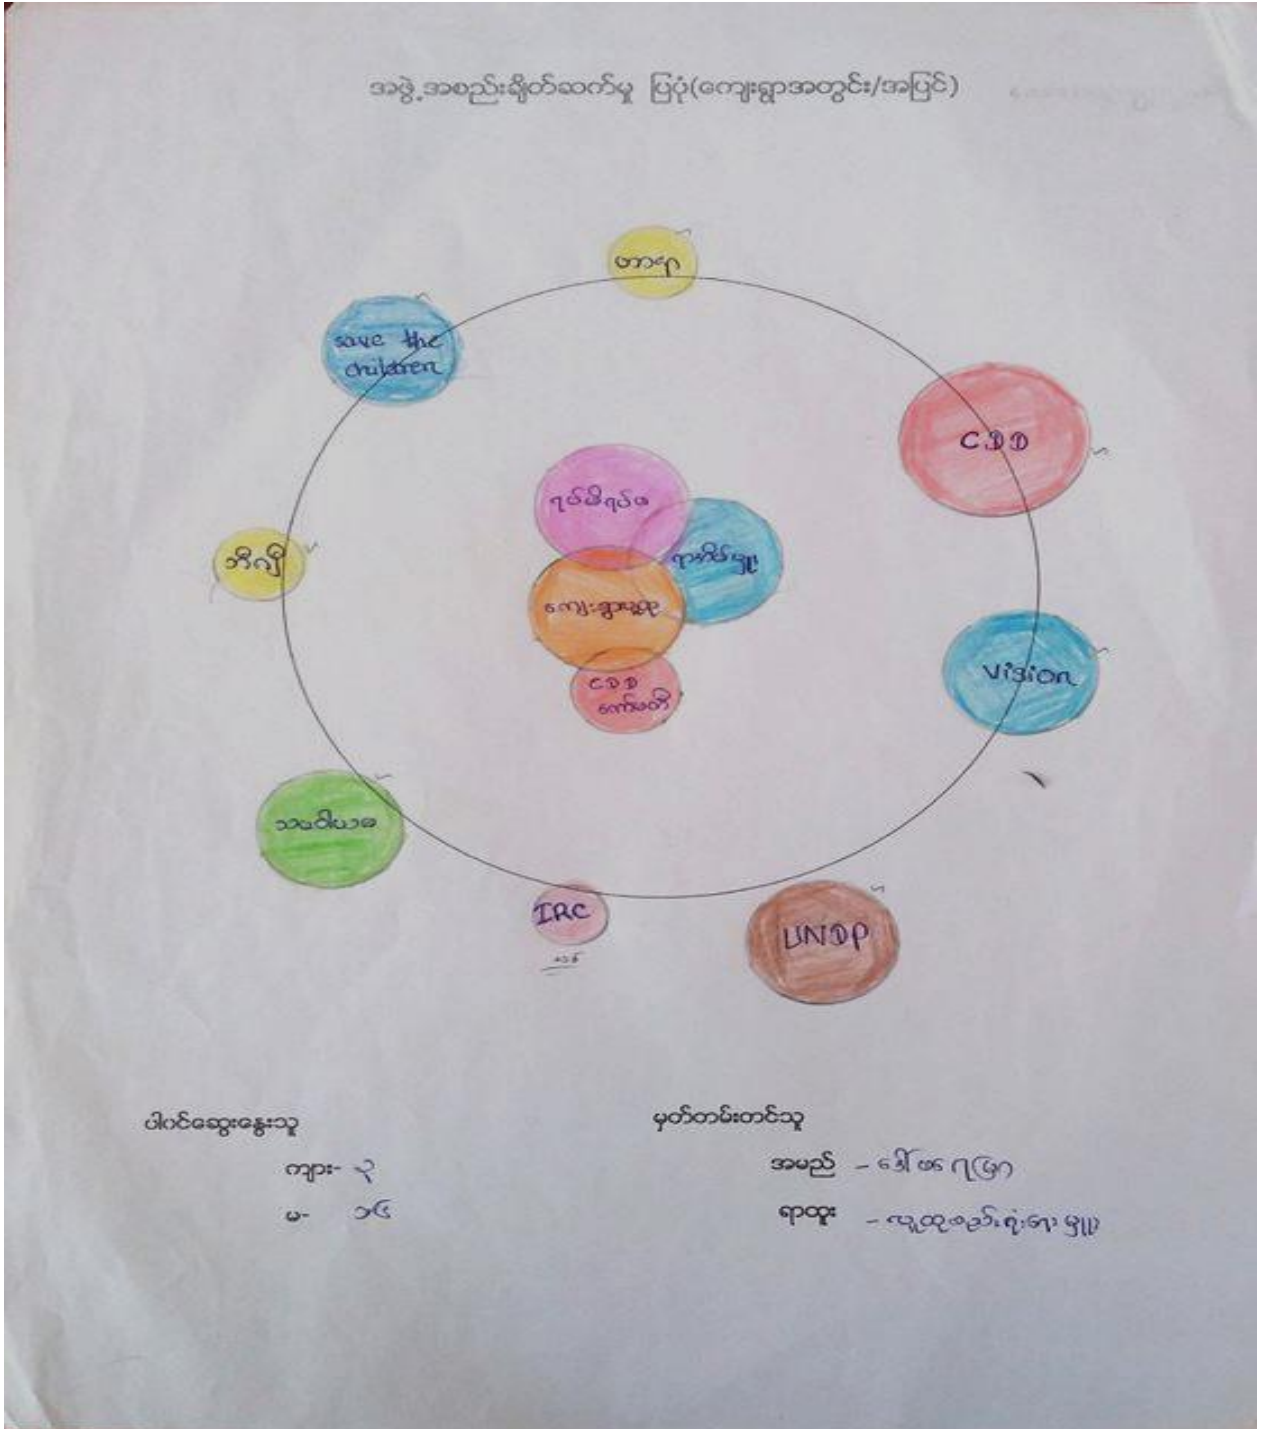 အဖွဲ့အစည်းချိတ်ဆက်မှု ပြပုံ(ကျေးရွာအတွင်း/အပြင်)
ဟာရာ
save the
children
CDD
ရပ်မိရပ်ဖ
ရာအိမ်မှူး
ဘီဂျီ
ကျေးရွာလူထု
CDD
ကော်မတီ
Vision
သဝေါယမ
IRC
UNDP
ပါဝင်ဆွေးနွေးသူ
ကျား- ၃
မ- ၁၆
မှတ်တမ်းတင်သူ
အမည် - ဒေါ်
ရာထူး - လူထုစည်းရုံးရေးမှူး